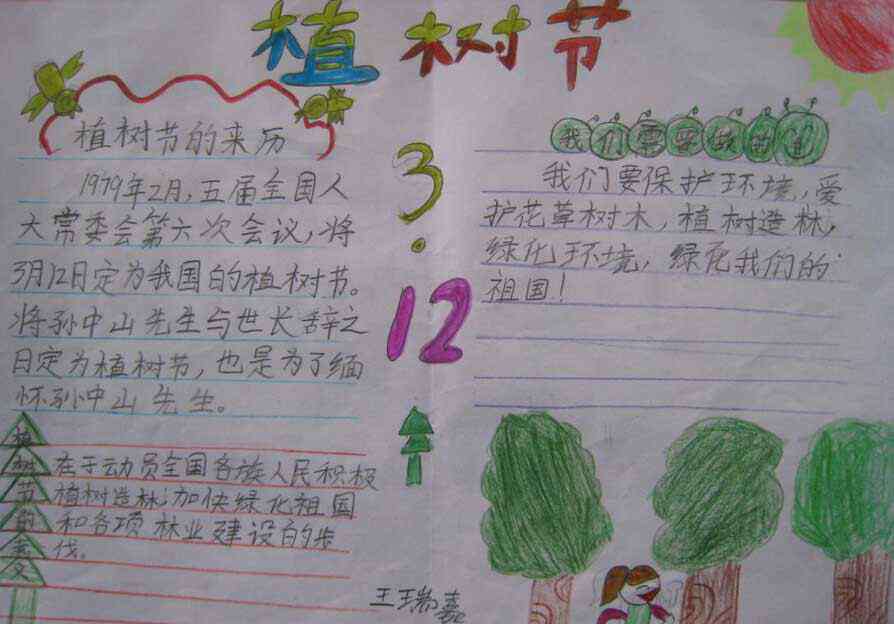 植树节
植树节的来历
1979年2月，五届全国人
大常委会第六次会议，将
3月12日定为我国的植树节。
将孙中山先生与世长辞之
日定为植树节，也是为了缅
怀孙中山先生。
3.12
我们需要做的
我们要保护环境，爱
护花草树木，植树造林，
绿化环境，绿化我们的
祖国！
植树节的意义
在于动员全国各族人民积极
植树造林，加快绿化祖国
和各项林业建设的步
伐。
王瑞嘉